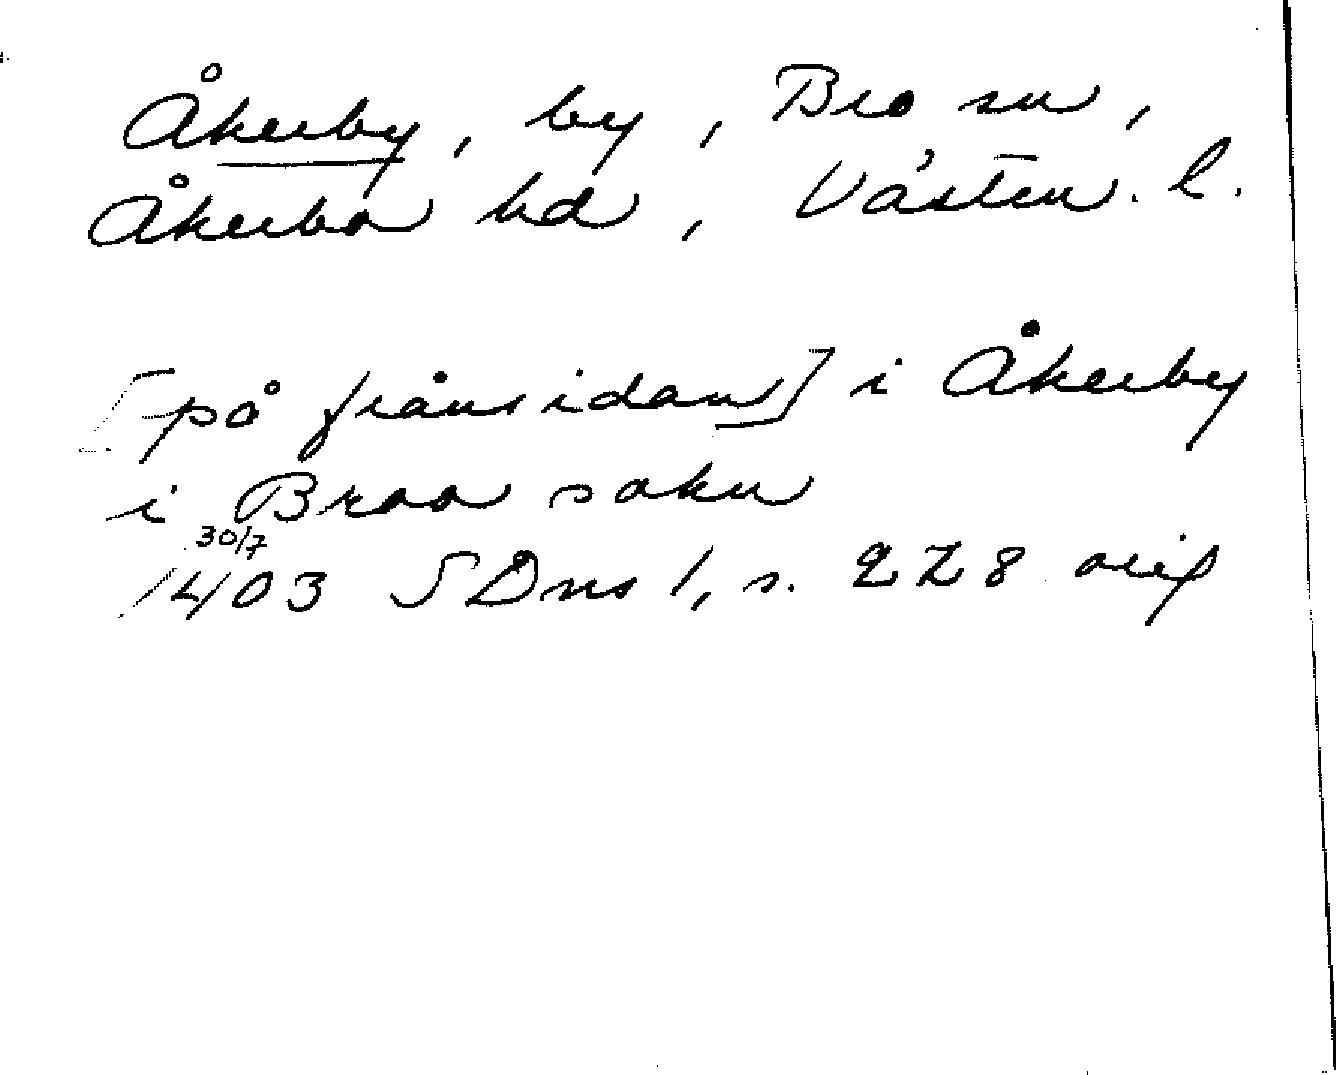 Åkerby, by, Bro sn,
Åkerbo hd, Västm. l.
[på frånsidan] i Åkerby
i Broo sokn
30/7
1403 SDns 1, s. 228 orig